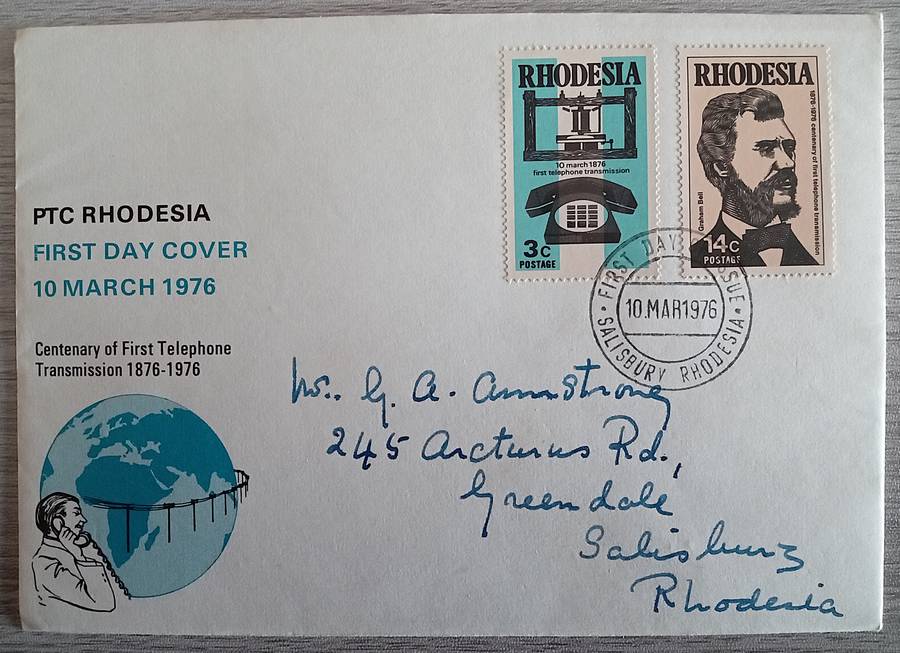 PTC RHODESIA
FIRST DAY COVER
10 MARCH 1976
Centenary of First Telephone
Transmission 1876-1976
RHODESIA
10 march 1876
first telephone transmission
3c
POSTAGE
RHODESIA
Graham Bell
1876-1976 centenary of first telephone transmission
14c
POSTAGE
FIRST DAY ISSUE
10.MAR1976
SALISBURY RHODESIA
Mr. G. A. Armstrong
245 Arcturus Rd.,
Greendale
Salisbury
Rhodesia